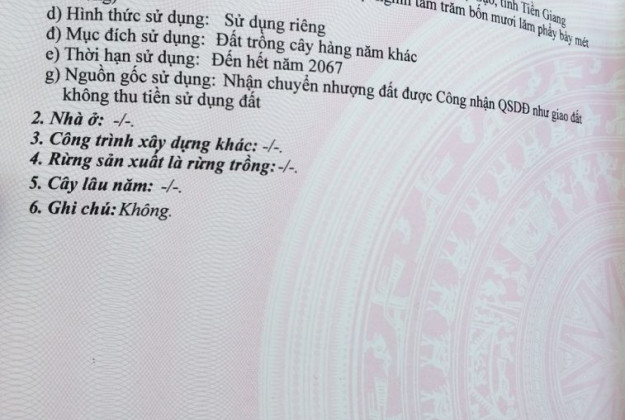 tỉnh Tiền Giang
tám trăm bốn mươi lăm phẩy bảy mét
d) Hình thức sử dụng: Sử dụng riêng
đ) Mục đích sử dụng: Đất trồng cây hàng năm khác
e) Thời hạn sử dụng: Đến hết năm 2067
g) Nguồn gốc sử dụng: Nhận chuyển nhượng đất được Công nhận QSDĐ như giao đất
không thu tiền sử dụng đất
2. Nhà ở: -/-.
3. Công trình xây dựng khác: -/-.
4. Rừng sản xuất là rừng trồng: -/-.
5. Cây lâu năm: -/-.
6. Ghi chú: Không.